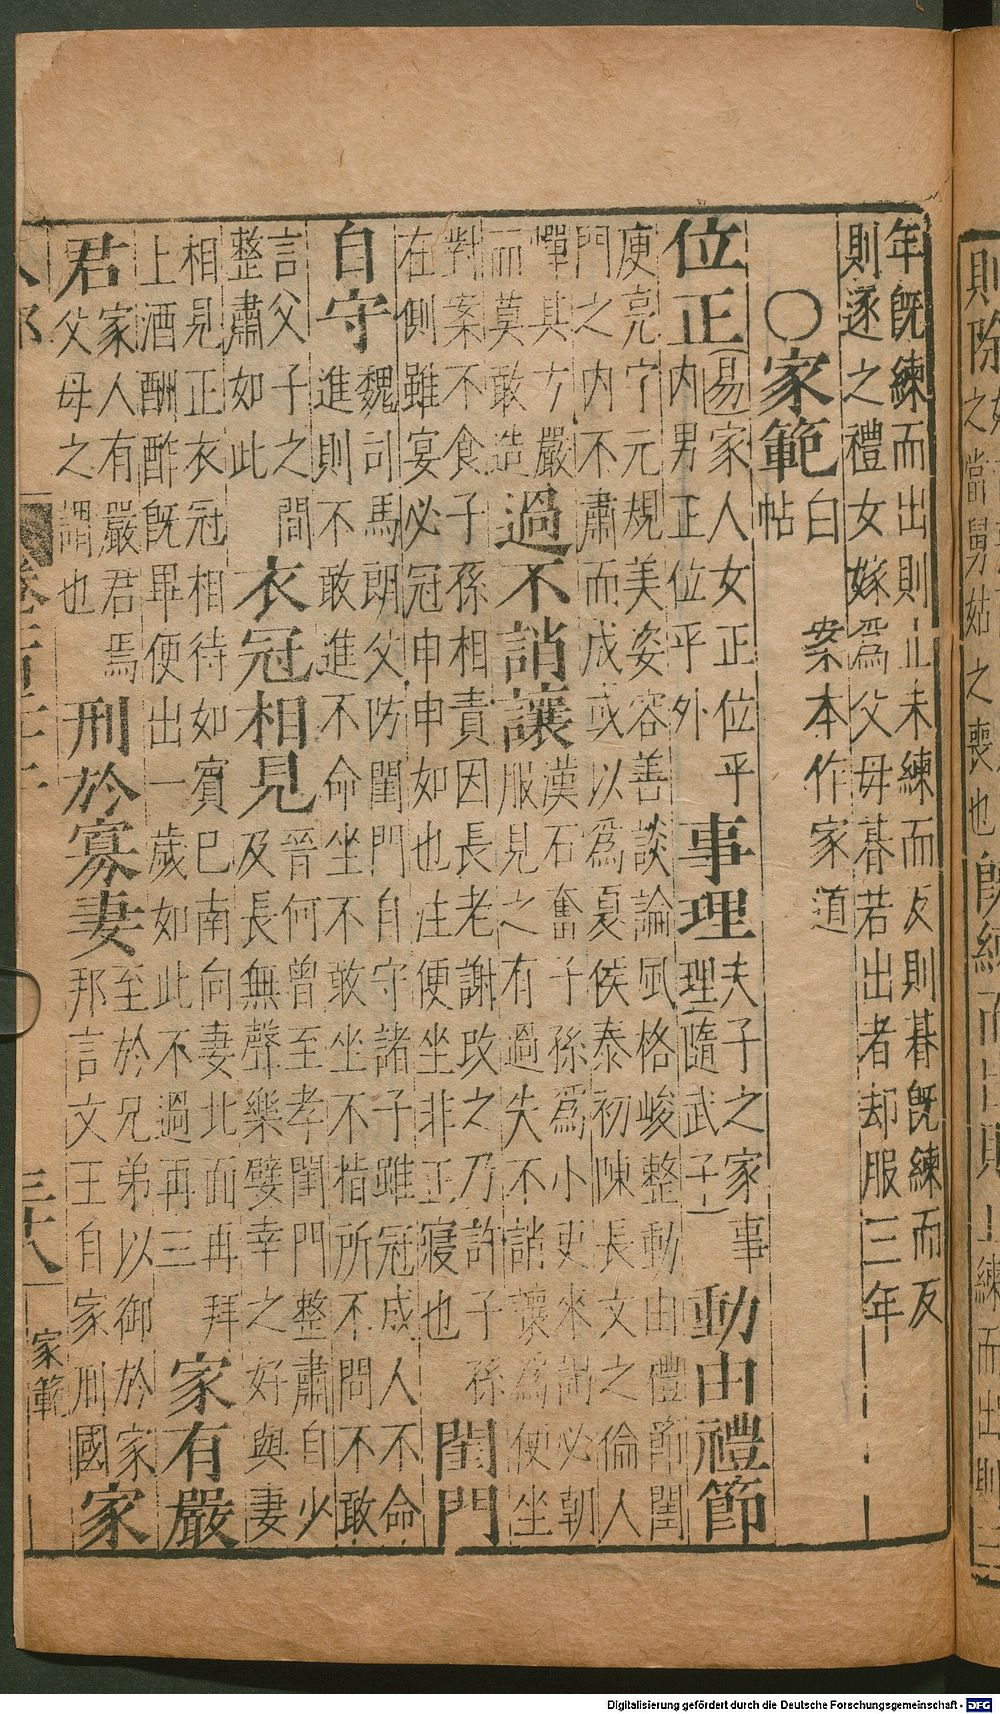 年旣練而出則止未練而反則朞旣練而反
則遂之禮女嫁爲父母朞若出者却服三年
○家範白帖案本作家道
位正易家人女正位乎
內男正位乎外
事理夫子之家事
理隨武子
動由禮節
庾亮字元規美姿容善談論風格峻整動由禮節閨
門之內不肅而成或以爲夏侯泰初陳長文之倫人
憚其方嚴
而莫敢造
過不誚讓漢石奮子孫爲小吏來謁必朝
服見之有過失不誚讓爲便坐
對案不食子孫相責因長老謝改之乃許子孫
在側雖宴必冠申申如也注便坐非正寢也
閨門
自守魏司馬朗父防閨門自守諸子雖冠成人不命
進則不敢進不命坐不敢坐不指所不問不敢
言父子之間
整肅如此
衣冠相見晉何曾至孝閨門整肅自少
及長無聲樂嬖幸之好與妻
相見正衣冠相待如賓已南向妻北面再拜
上酒酬酢旣畢便出一歲如此不過再三
家有嚴
君家人有嚴君焉
父母之謂也
刑於寡妻至於兄弟以御於家
邦言文王自家刑國
家
卷
三十八
家範
則除
之
當舅姑
之喪也
而出
Digitalisierung gefördert durch die Deutsche Forschungsgemeinschaft - DFG